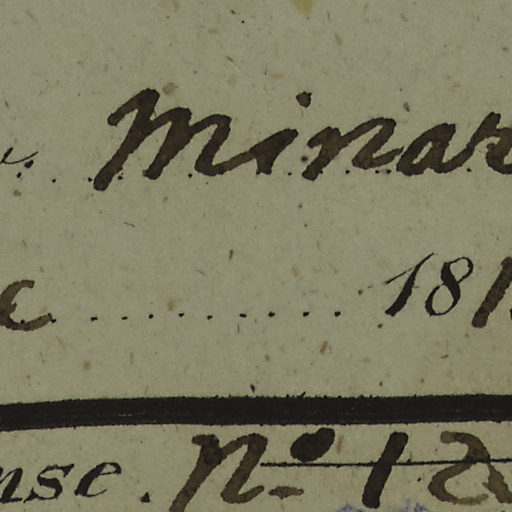 Minar
c ............ 181
nse. N.o 12